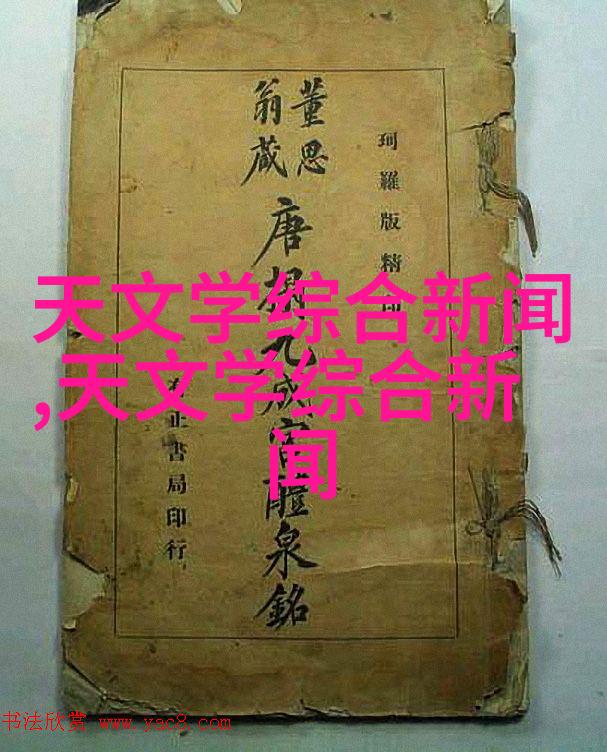 珂羅版精印
董思
翁藏
唐搨九成宮醴泉銘
正書局印行
天文学综合新闻
,天文学综合新
闻
书法欣赏 www.yac8.com